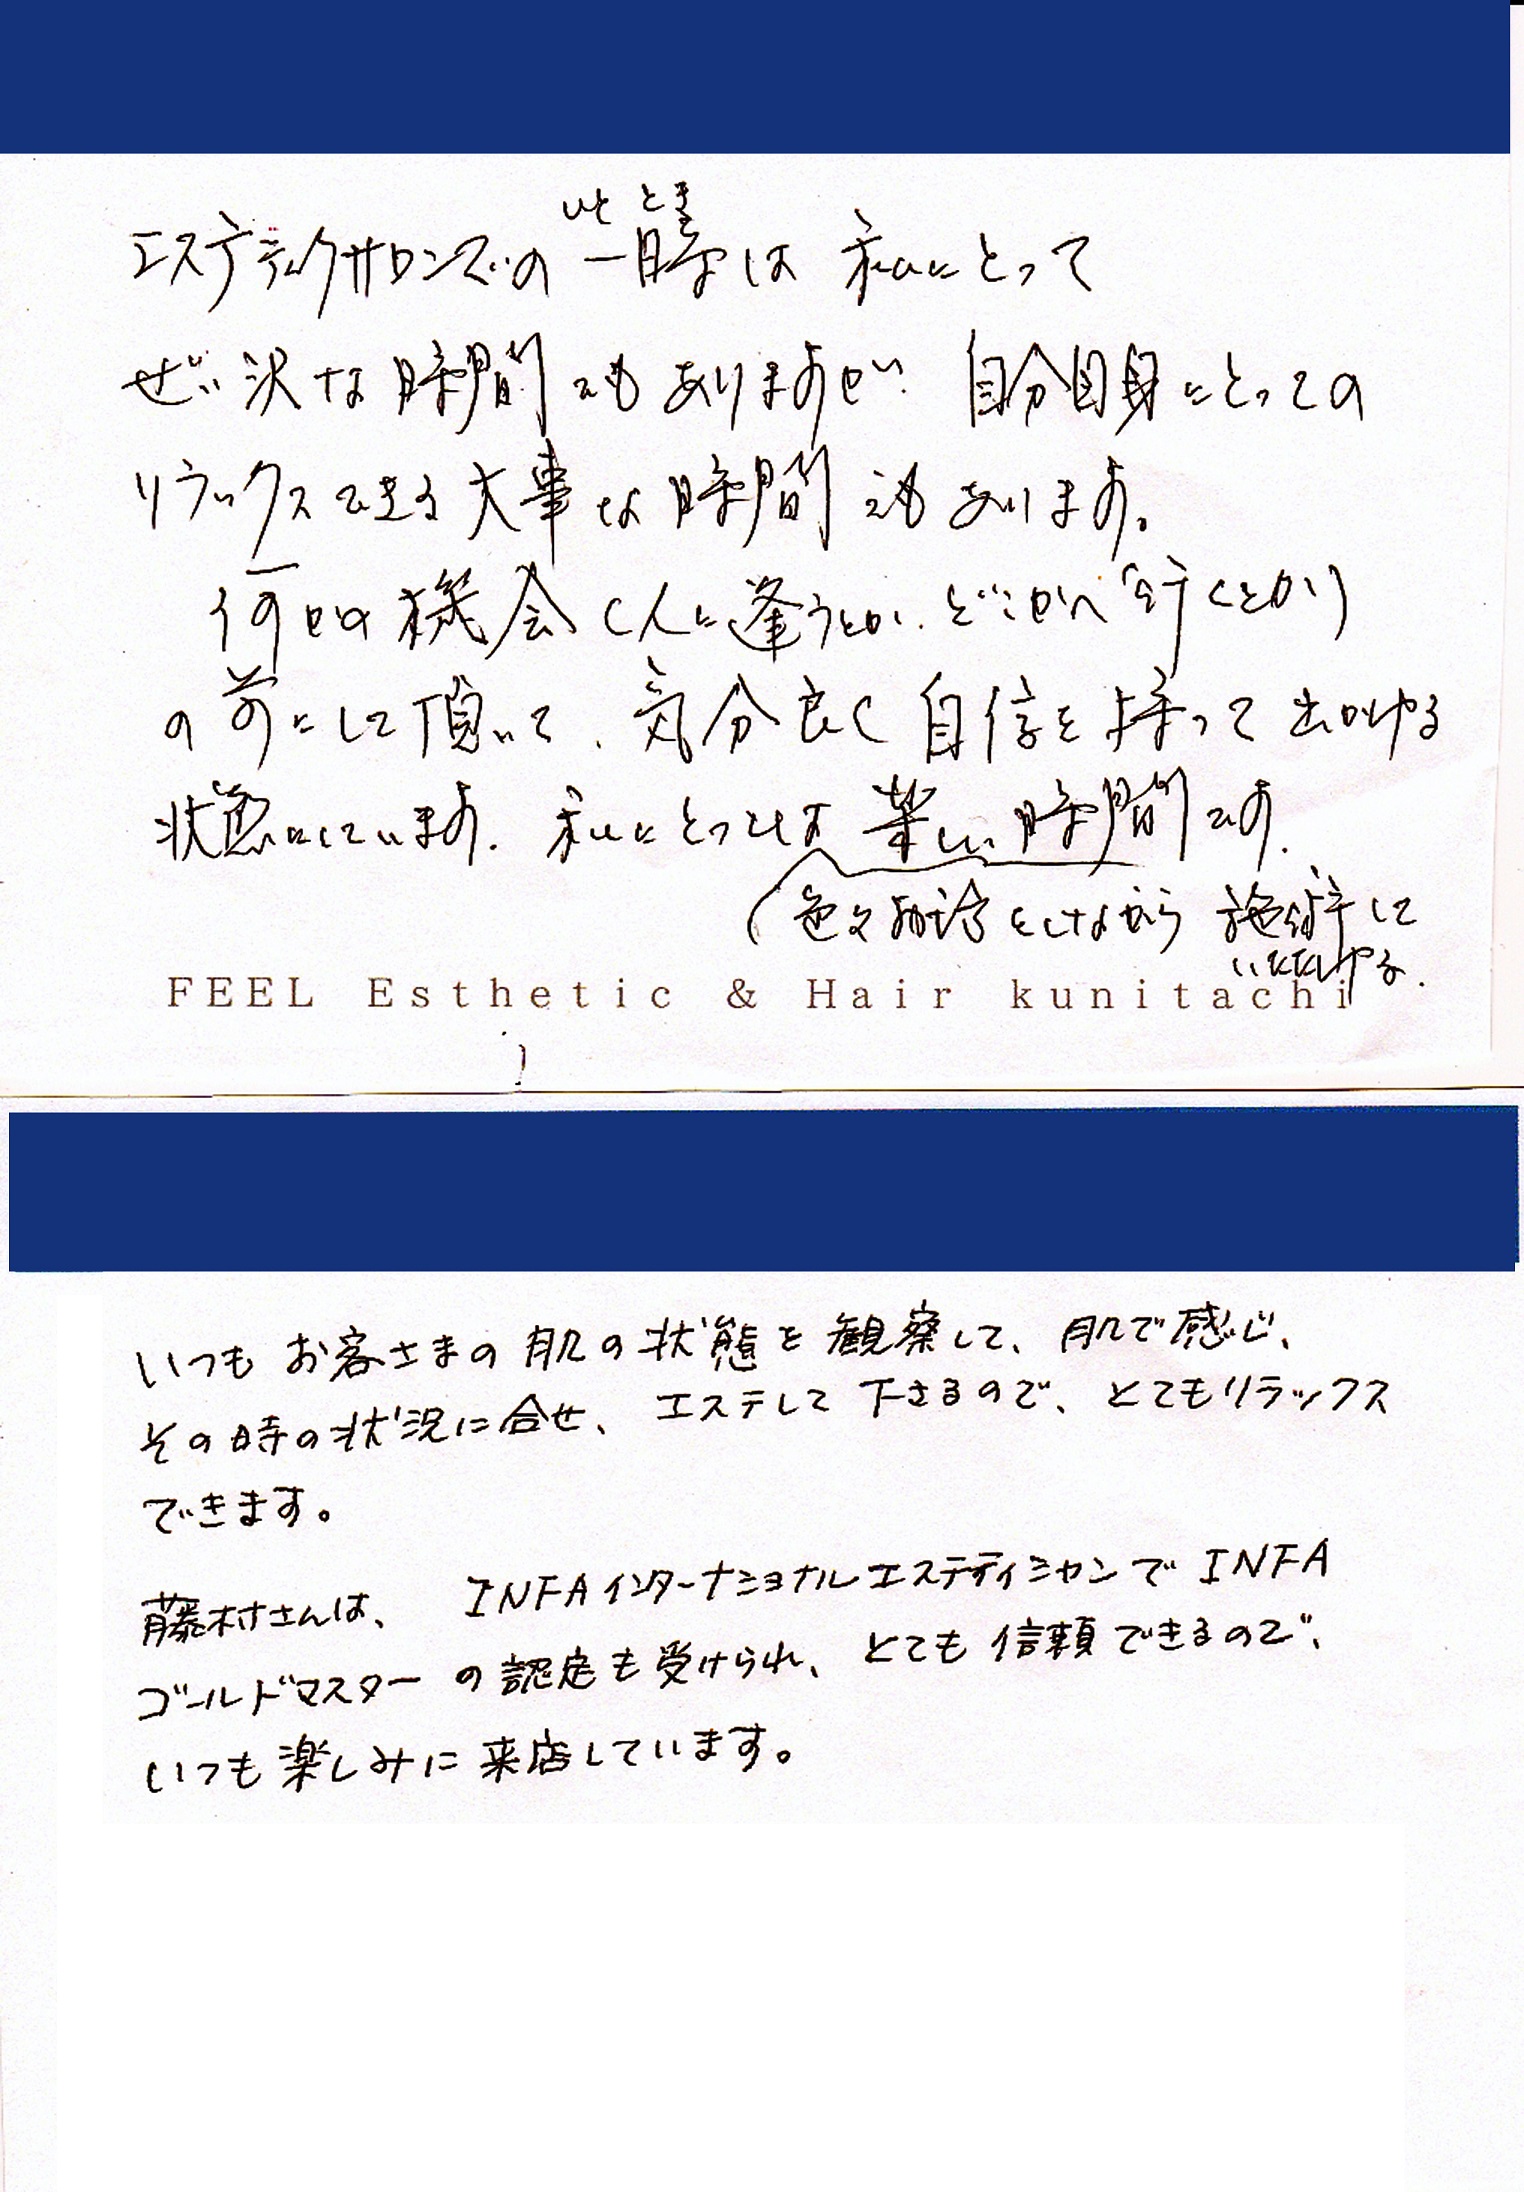 ひととき
エステティックサロンでの一時は 私にとって
ぜい沢な時間でもありますが、自分自身にとっての
リラックスできる大事な時間でもあります。
何かの機会(人に逢うとか、どこかへ行くとか)
の前にして頂いて、気分良く自信を持って出かける
状態にしています。私にとっては楽しい時間です。
(色々お話をしながら 施術して
いただける。
FEEL Esthetic & Hair kunitachi
いつもお客さまの肌の状態を観察して、肌で感じ、
その時の状況に合せ、エステして下さるので、とてもリラックス
できます。
藤村さんは、INFAインターナショナルエステティシャンでINFA
ゴールドマスターの認定も受けられ、とても信頼できるので、
いつも楽しみに来店しています。